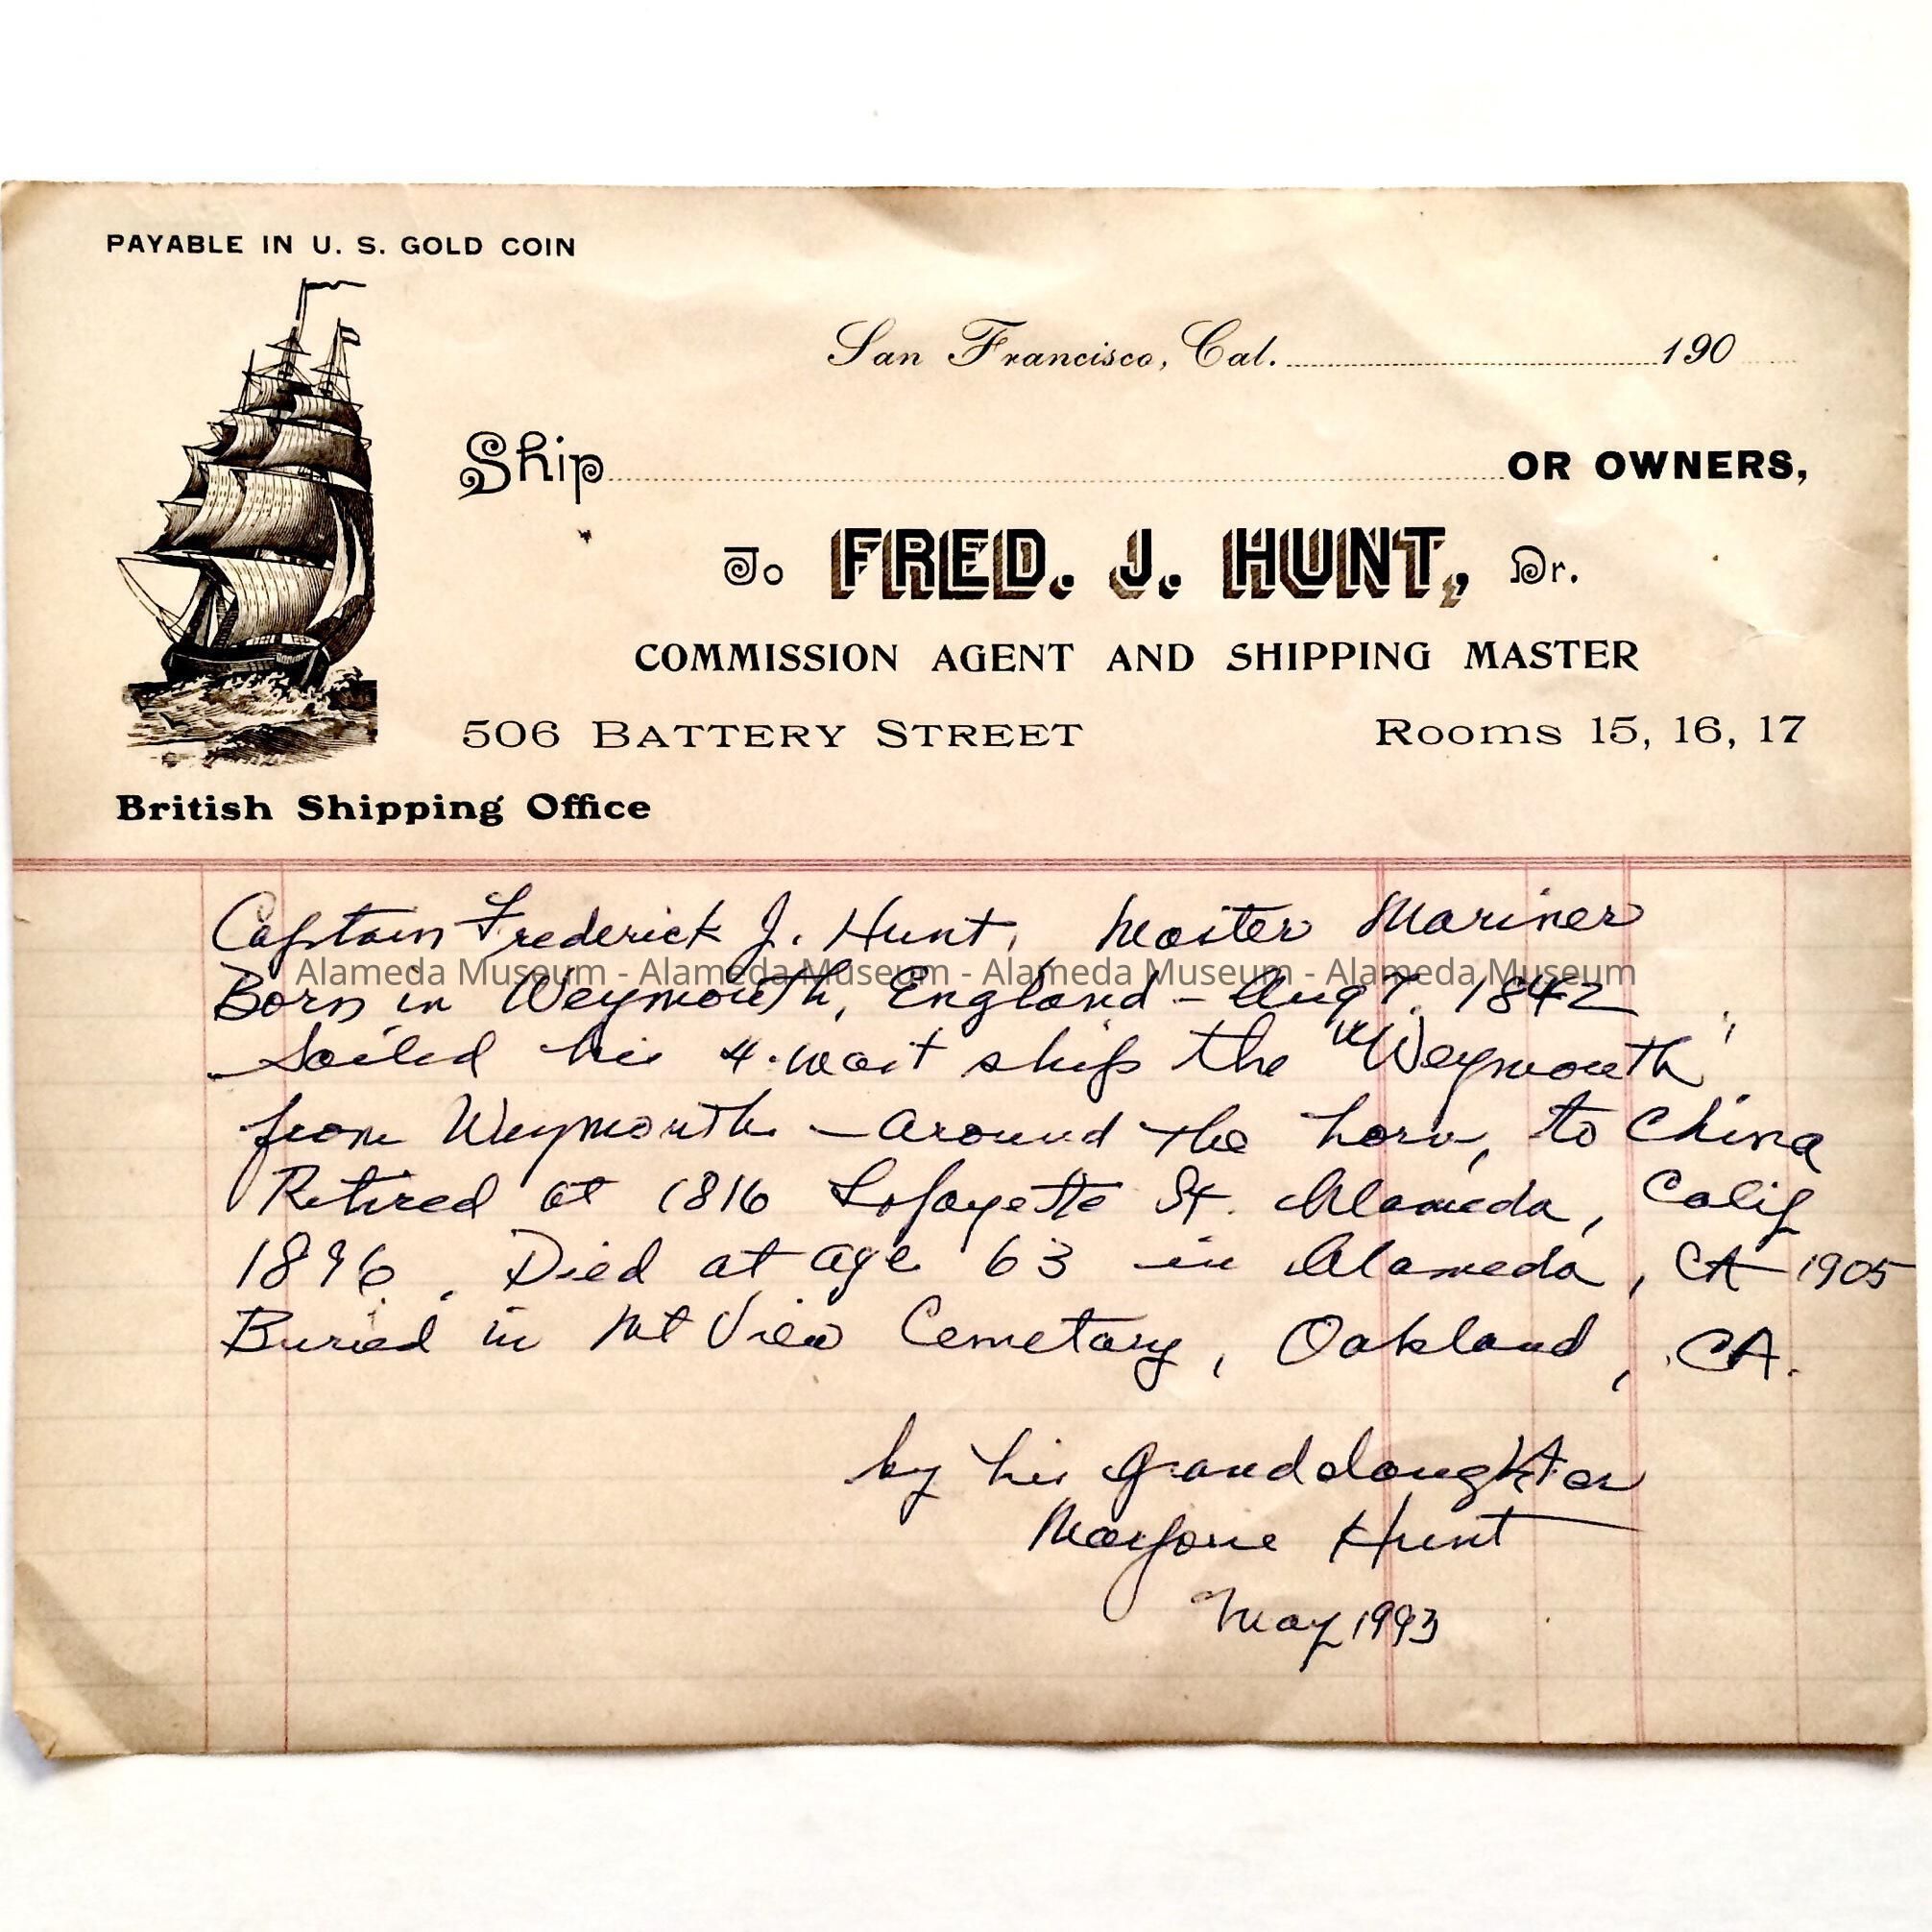 PAYABLE IN U. S. GOLD COIN
San Francisco, Cal. 190
Ship OR OWNERS,
To FRED. J. HUNT, Dr.
COMMISSION AGENT AND SHIPPING MASTER
506 BATTERY STREET Rooms 15, 16, 17
British Shipping Office
Captain Frederick J. Hunt, Master Mariner
Alameda Museum - Alameda Museum - Alameda Museum - Alameda Museum
Born in Weymouth, England - Aug 7, 1842
Sailed his 4-mast ship the "Weymouth"
from Weymouth - around the horn, to China
Retired at 1816 Lafayette St. Alameda, Calif
1896. Died at age 63 in Alameda, CA - 1905
Buried in Mt View Cemetary, Oakland, CA.
by his granddaughter
Marjorie Hunt
May 1993